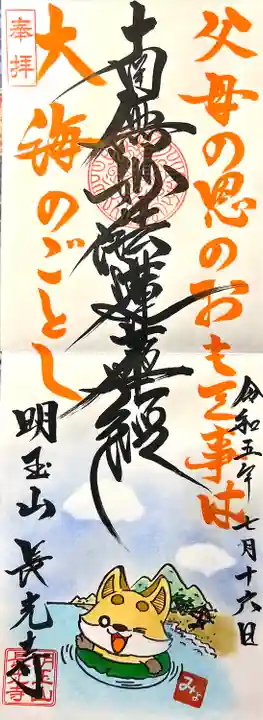 父母の恩のおもき事は
大海のごとし
奉拝
南無妙法蓮華経
令和五年七月十六日
明玉山 長光寺
みょ